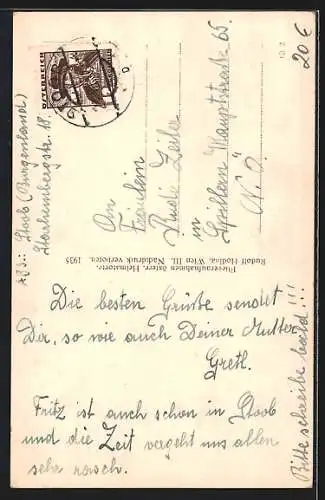 ÖSTERREICH
Abs.: Stoob (Burgenland)
Starhembergstr. 18.
An
Fräulein
Rudi Zeiler
in
Hauptstraße 65.
N.Ö.
20€
Fliegeraufnahmen österr. Heimatorte.
Rudolf Hodina, Wien III. Nachdruck verboten. 1935
Die besten Grüße sendet
Dir, so wie auch Deiner Mutter
Gretl.
Fritz ist auch schon in Stoob
und die Zeit vergeht uns allen
sehr rasch.
Bitte schreibe bald!!!